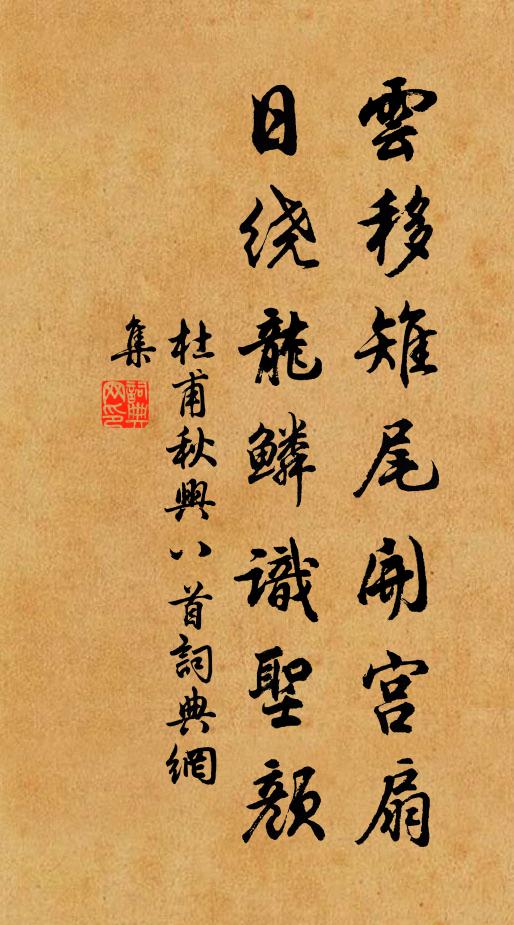 雲移雉尾開宮扇
日绕龍鱗識聖顏
杜甫秋興八首詞典網
集
詞典網印